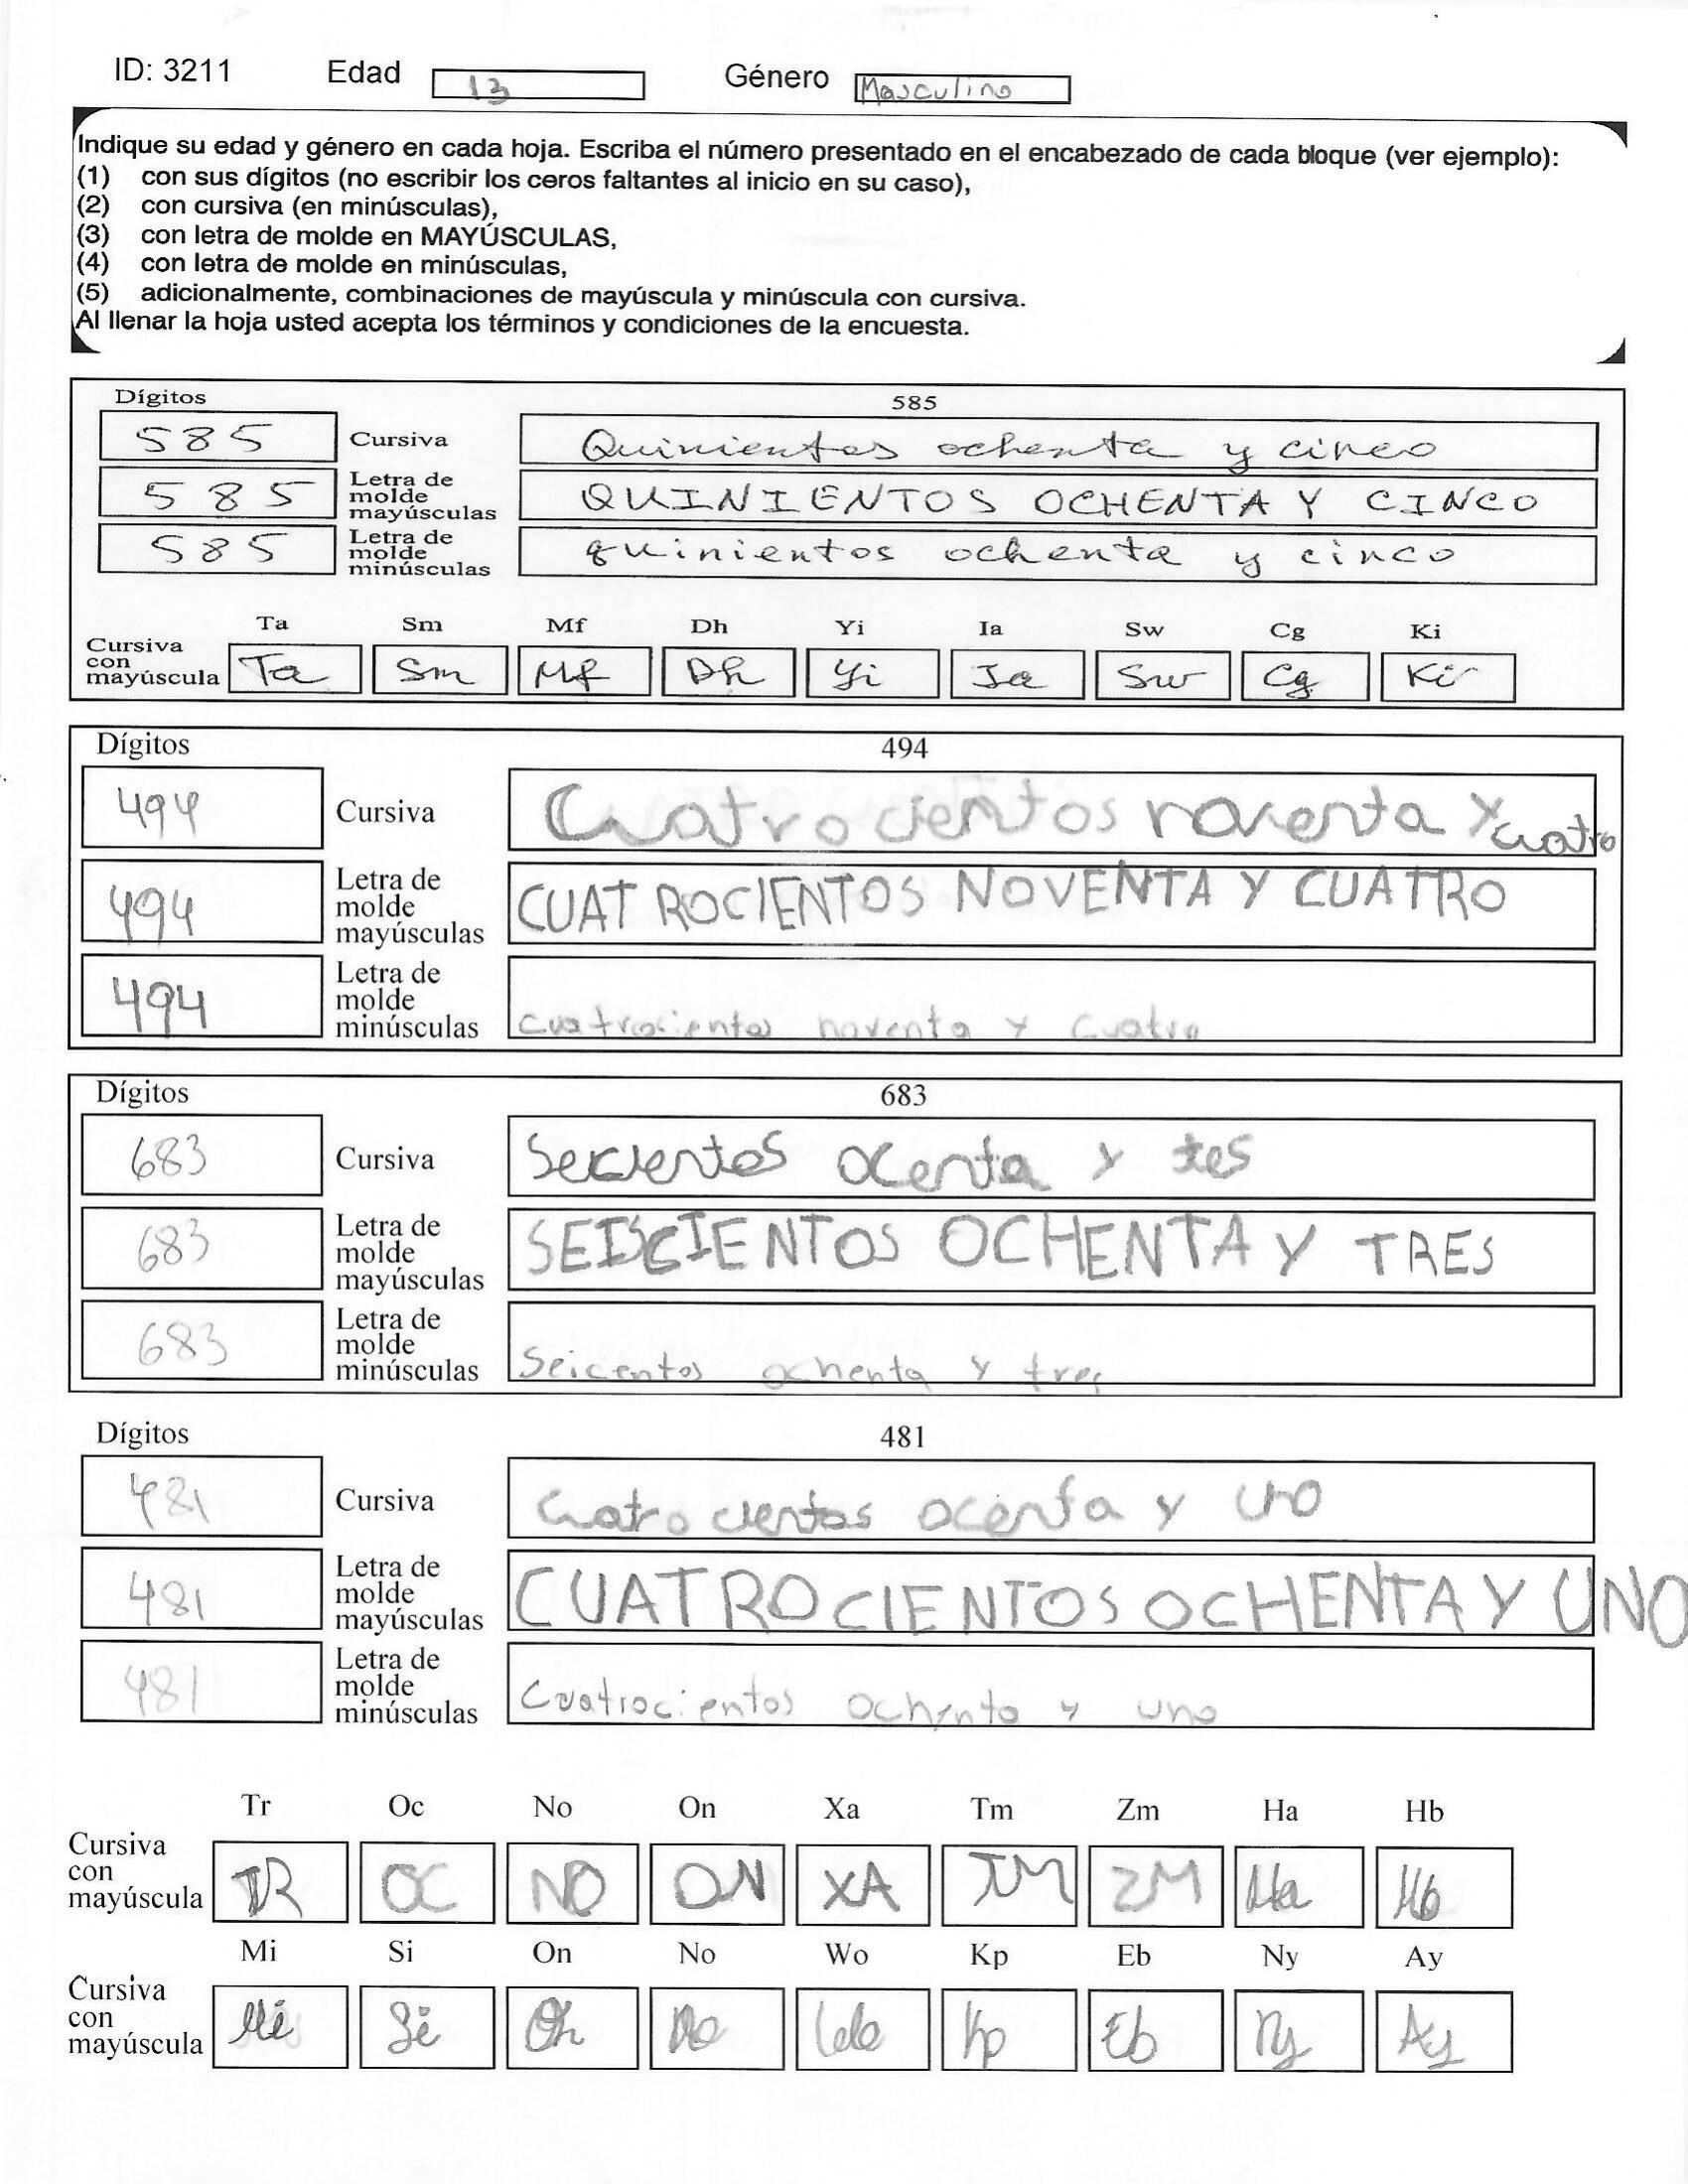 ID: 3211 Edad 13 Género Masculino
Indique su edad y género en cada hoja. Escriba el número presentado en el encabezado de cada bloque (ver ejemplo):
(1) con sus dígitos (no escribir los ceros faltantes al inicio en su caso),
(2) con cursiva (en minúsculas),
(3) con letra de molde en MAYÚSCULAS,
(4) con letra de molde en minúsculas,
(5) adicionalmente, combinaciones de mayúscula y minúscula con cursiva.
Al llenar la hoja usted acepta los términos y condiciones de la encuesta.
Dígitos 585
585 Cursiva Quinientos ochenta y cinco
585 Letra de molde mayúsculas QUINIENTOS OCHENTA Y CINCO
585 Letra de molde minúsculas quinientos ochenta y cinco
Ta Sm Mf Dh Yi Ia Sw Cg Ki
Cursiva con mayúscula Ta Sm Mf Dh Yi Ia Sw Cg Ki
Dígitos 494
494 Cursiva Cuatrocientos noventa y cuatro
494 Letra de molde mayúsculas CUATROCIENTOS NOVENTA Y CUATRO
494 Letra de molde minúsculas cuatrocientos noventa y cuatro
Dígitos 683
683 Cursiva Secientos ocenta y tes
683 Letra de molde mayúsculas SEISCIENTOS OCHENTA Y TRES
683 Letra de molde minúsculas Seicentos ochenta y tres
Dígitos 481
481 Cursiva Cuatrocientos ocenta y uno
481 Letra de molde mayúsculas CUATROCIENTOS OCHENTA Y UNO
481 Letra de molde minúsculas Cuatrocientos ochenta y uno
Tr Oc No On Xa Tm Zm Ha Hb
Cursiva con mayúscula TR OC NO ON XA TM ZM Ha Hb
Mi Si On No Wo Kp Eb Ny Ay
Cursiva con mayúscula Mi Si On No Wo Kp Eb Ny Ay